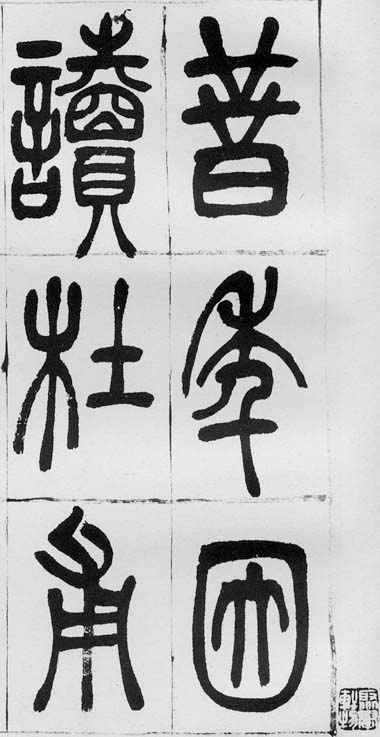 昔年因
讀杜甫